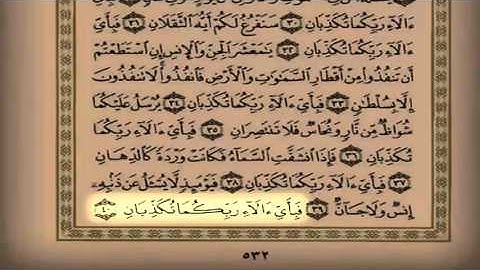 ءَالَآءِ رَبِّكُمَا تُكَذِّبَانِ ٣٠ سَنَفْرُغُ لَكُمْ أَيُّهَ ٱلثَّقَلَانِ ٣١ فَبِأَيِّ
ءَالَآءِ رَبِّكُمَا تُكَذِّبَانِ ٣٢ يَٰمَعْشَرَ ٱلْجِنِّ وَٱلْإِنسِ إِنِ ٱسْتَطَعْتُمْ
أَن تَنفُذُوا۟ مِنْ أَقْطَارِ ٱلسَّمَٰوَٰتِ وَٱلْأَرْضِ فَٱنفُذُوا۟ لَا تَنفُذُونَ
إِلَّا بِسُلْطَٰنٍ ٣٣ فَبِأَيِّ ءَالَآءِ رَبِّكُمَا تُكَذِّبَانِ ٣٤ يُرْسَلُ عَلَيْكُمَا
شُوَاظٌ مِّن نَّارٍ وَنُحَاسٌ فَلَا تَنتَصِرَانِ ٣٥ فَبِأَيِّ ءَالَآءِ رَبِّكُمَا
تُكَذِّبَانِ ٣٦ فَإِذَا ٱنشَقَّتِ ٱلسَّمَآءُ فَكَانَتْ وَرْدَةً كَٱلدِّهَانِ
٣٧ فَبِأَيِّ ءَالَآءِ رَبِّكُمَا تُكَذِّبَانِ ٣٨ فَيَوْمَئِذٍ لَّا يُسْـَٔلُ عَن ذَنۢبِهِۦٓ
إِنسٌ وَلَا جَآنٌّ ٣٩ فَبِأَيِّ ءَالَآءِ رَبِّكُمَا تُكَذِّبَانِ ٤٠
٥٣٢